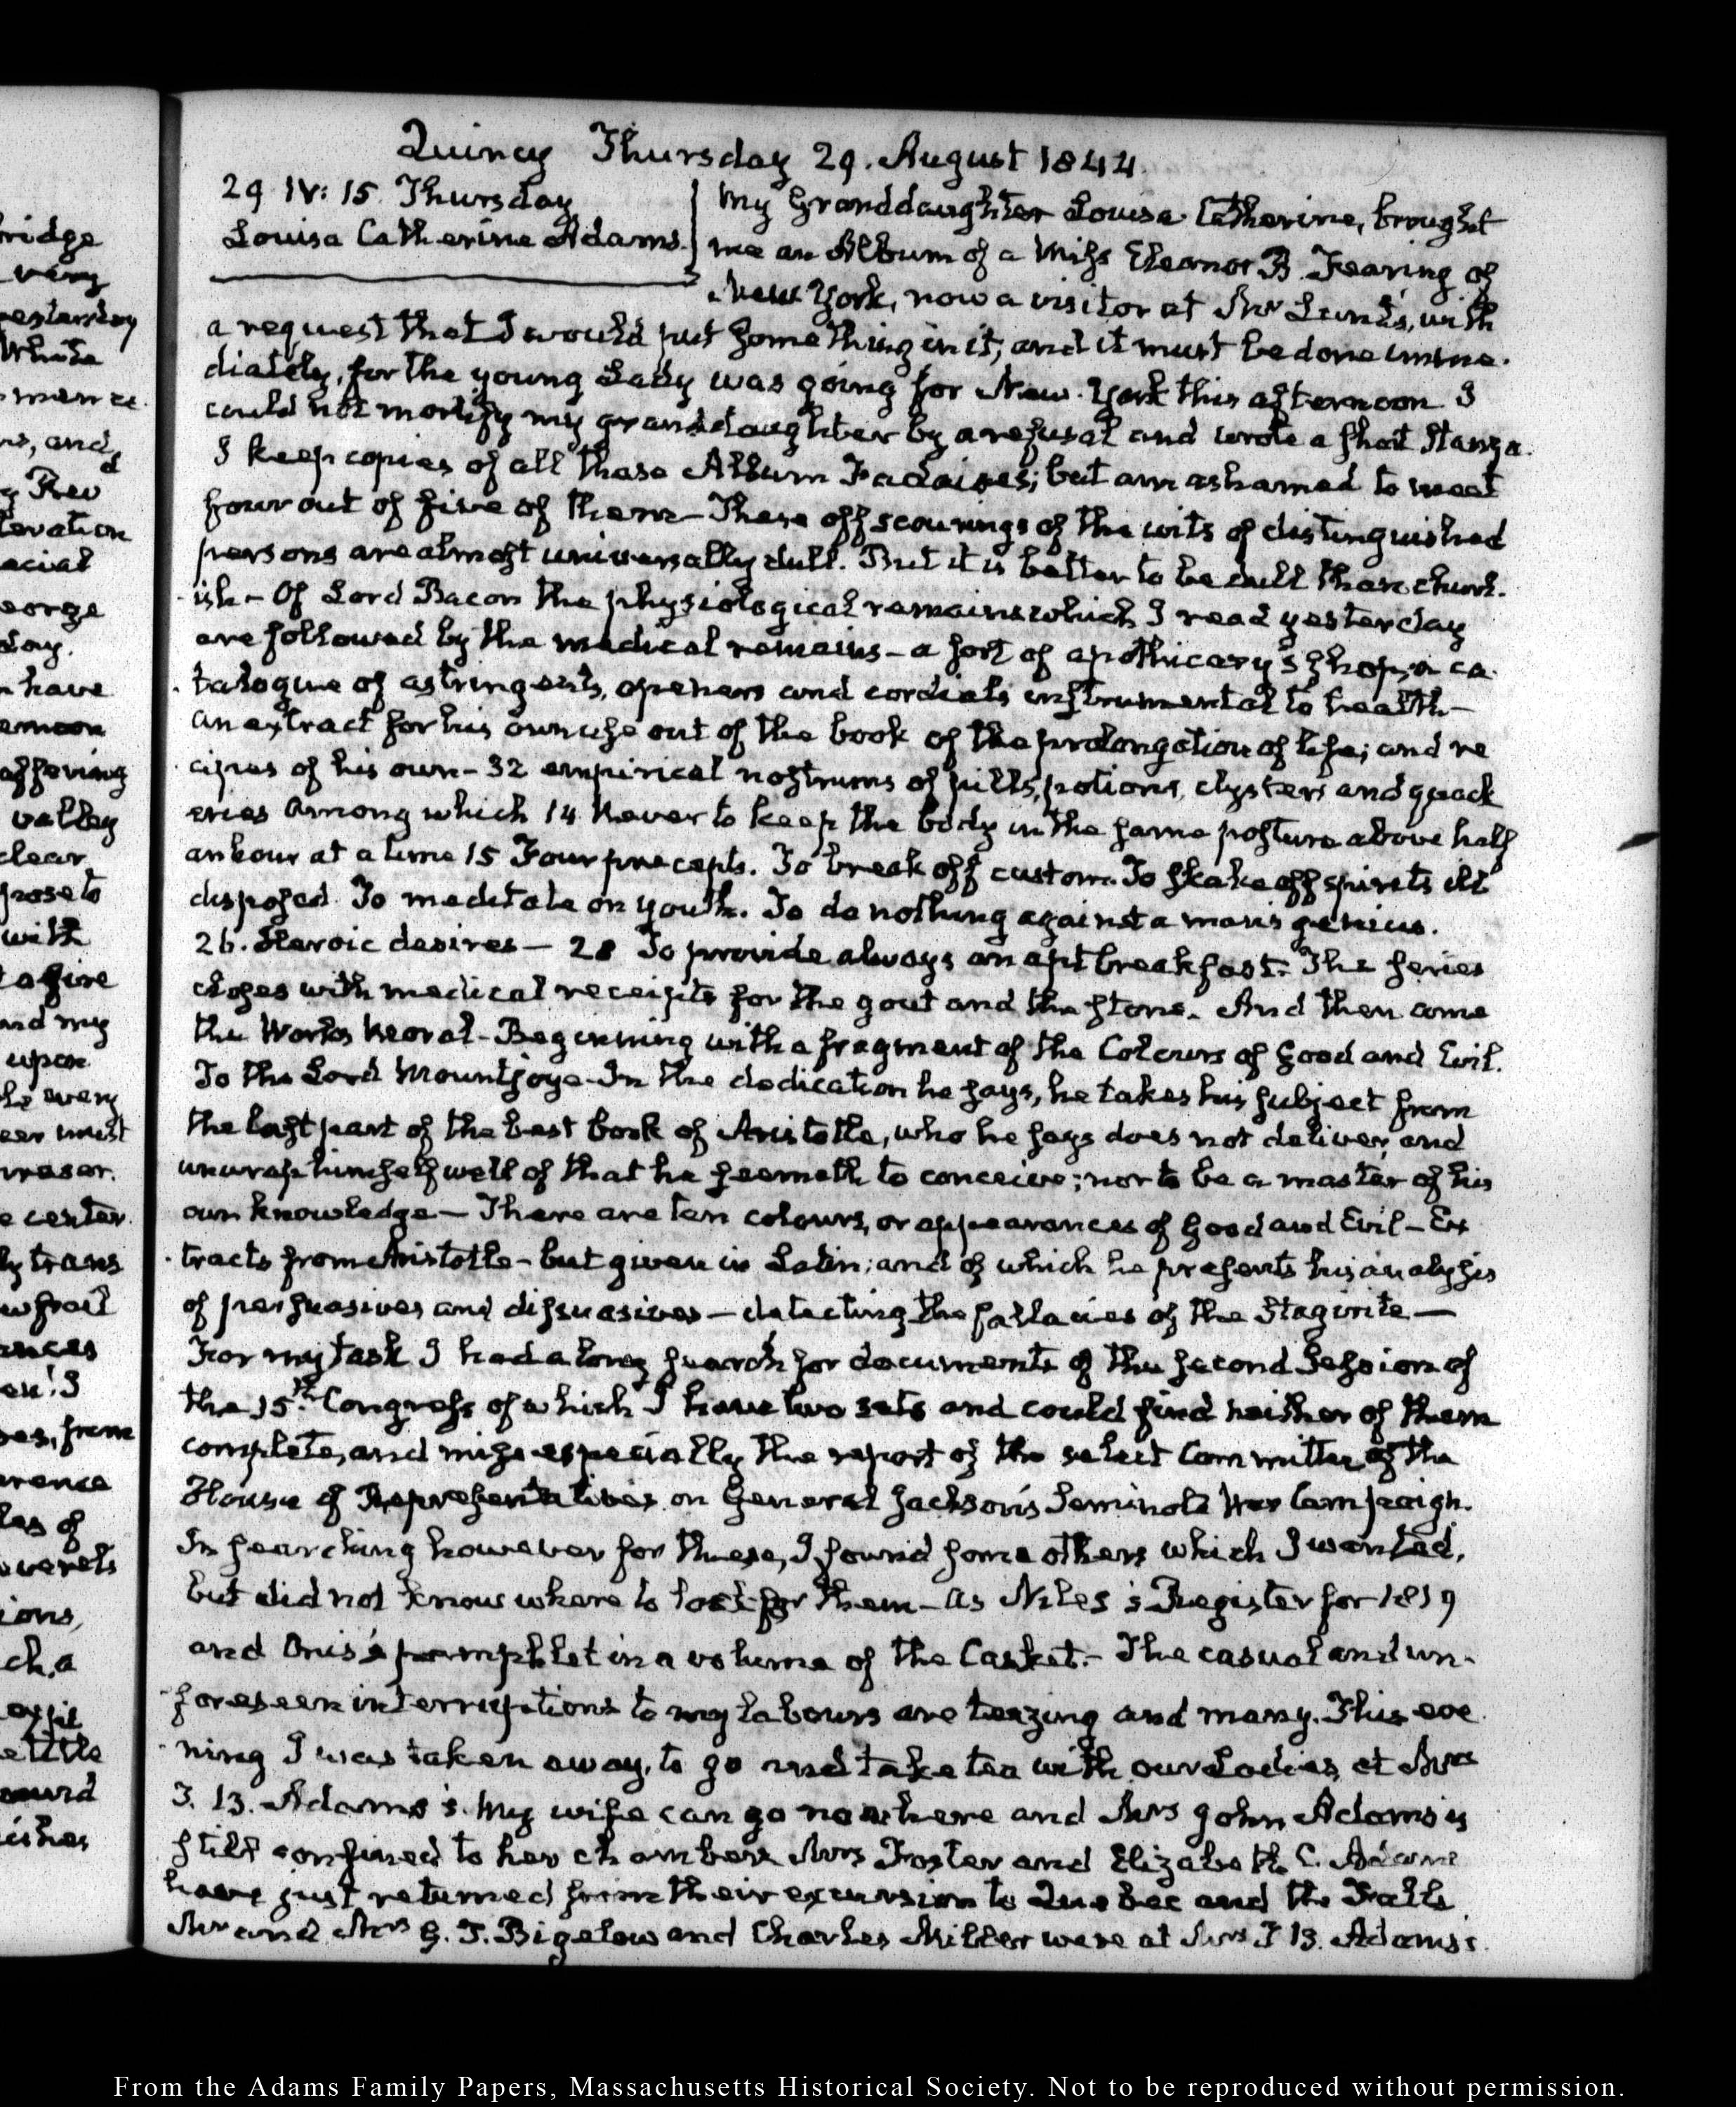 Quincy Thursday 29. August 1844.
29 IV: 15. Thursday
Louisa Catherine Adams.
My Granddaughter Louisa Catherine, brought
me an Album of a Miss Eleanor B. Fearing of
New York, now a visitor at Mr Lunt's, with
a request that I would put something in it, and it must be done imme-
diately, for the young Lady was going for New-York this afternoon. I
could not mortify my granddaughter by a refusal and wrote a short Stanza.
I keep copies of all these Album Fadaises; but am ashamed to meet
four out of five of them— These offscourings of the wits of distinguished
persons are almost universally dull. But it is better to be dull than churl-
ish— Of Lord Bacon the physiological remains which I read yesterday
are followed by the medical remains— a sort of apothicary's shop, a ca-
talogue of astringents, openers and cordials instrumental to health—
an extract for his own use out of the book of the prolongation of life; and re
cipes of his own— 32 empirical nostrums of pills, potions, clysters and quack
eries among which 14. Never to keep the body in the same posture above half
an hour at a time 15 Four precepts. To break off custom. To shake off spirits ill
disposed. To meditate on youth. To do nothing against a man's genius.
26. Heroic desires— 28 To provide always an apt breakfast. The series
closes with medical receipts for the gout and the stone. And then come
the Works Moral— Beginning with a fragment of the Colours of Good and Evil.
To the Lord Mountjoye— In the dedication he says, he takes his subject from
the last part of the best book of Aristotle, who he says does not deliver, and
unwrap himself well of that he seemeth to conceive; nor to be a master of his
own knowledge— There are ten colours, or appearances of Good and Evil— Ex
tracts from Aristotle— but given in Latin; and of which he presents his analysis
of persuasives and dissuasives— detecting the fallacies of the Stagirite—
For my task I had a long search for documents of the second Session of
the 15th. Congress of which I have two sets and could find neither of them
complete, and miss especially the report of the select Committee of the
House of Representatives on General Jackson's Seminole War Campaign.
In searching however for these, I found some others which I wanted,
but did not know where to look for them— as Niles's Register for 1819
and Onis's pamphlet in a volume of the Casket.— The casual and un-
foreseen interruptions to my labours are teazing and many. This eve
ning I was taken away, to go and take tea with our Ladies, at Mrs
T. B. Adams's. My wife can go no where and Mrs John Adams is
still confined to her chamber. Mrs Foster and Elizabeth C. Adams
have just returned from their excursion to Quebec and the Falls.
Mr and Mrs G. T. Bigelow and Charles Miller were at Mrs T B. Adams's.
ridge
very
yesterday
White
mance
ns, and
d
Rev
levation
acial
George
day.
have
clear
with
a fire
and my
upon
every
center.
trans
I
from
rence
of
ions,
ch, a
From the Adams Family Papers, Massachusetts Historical Society. Not to be reproduced without permission.